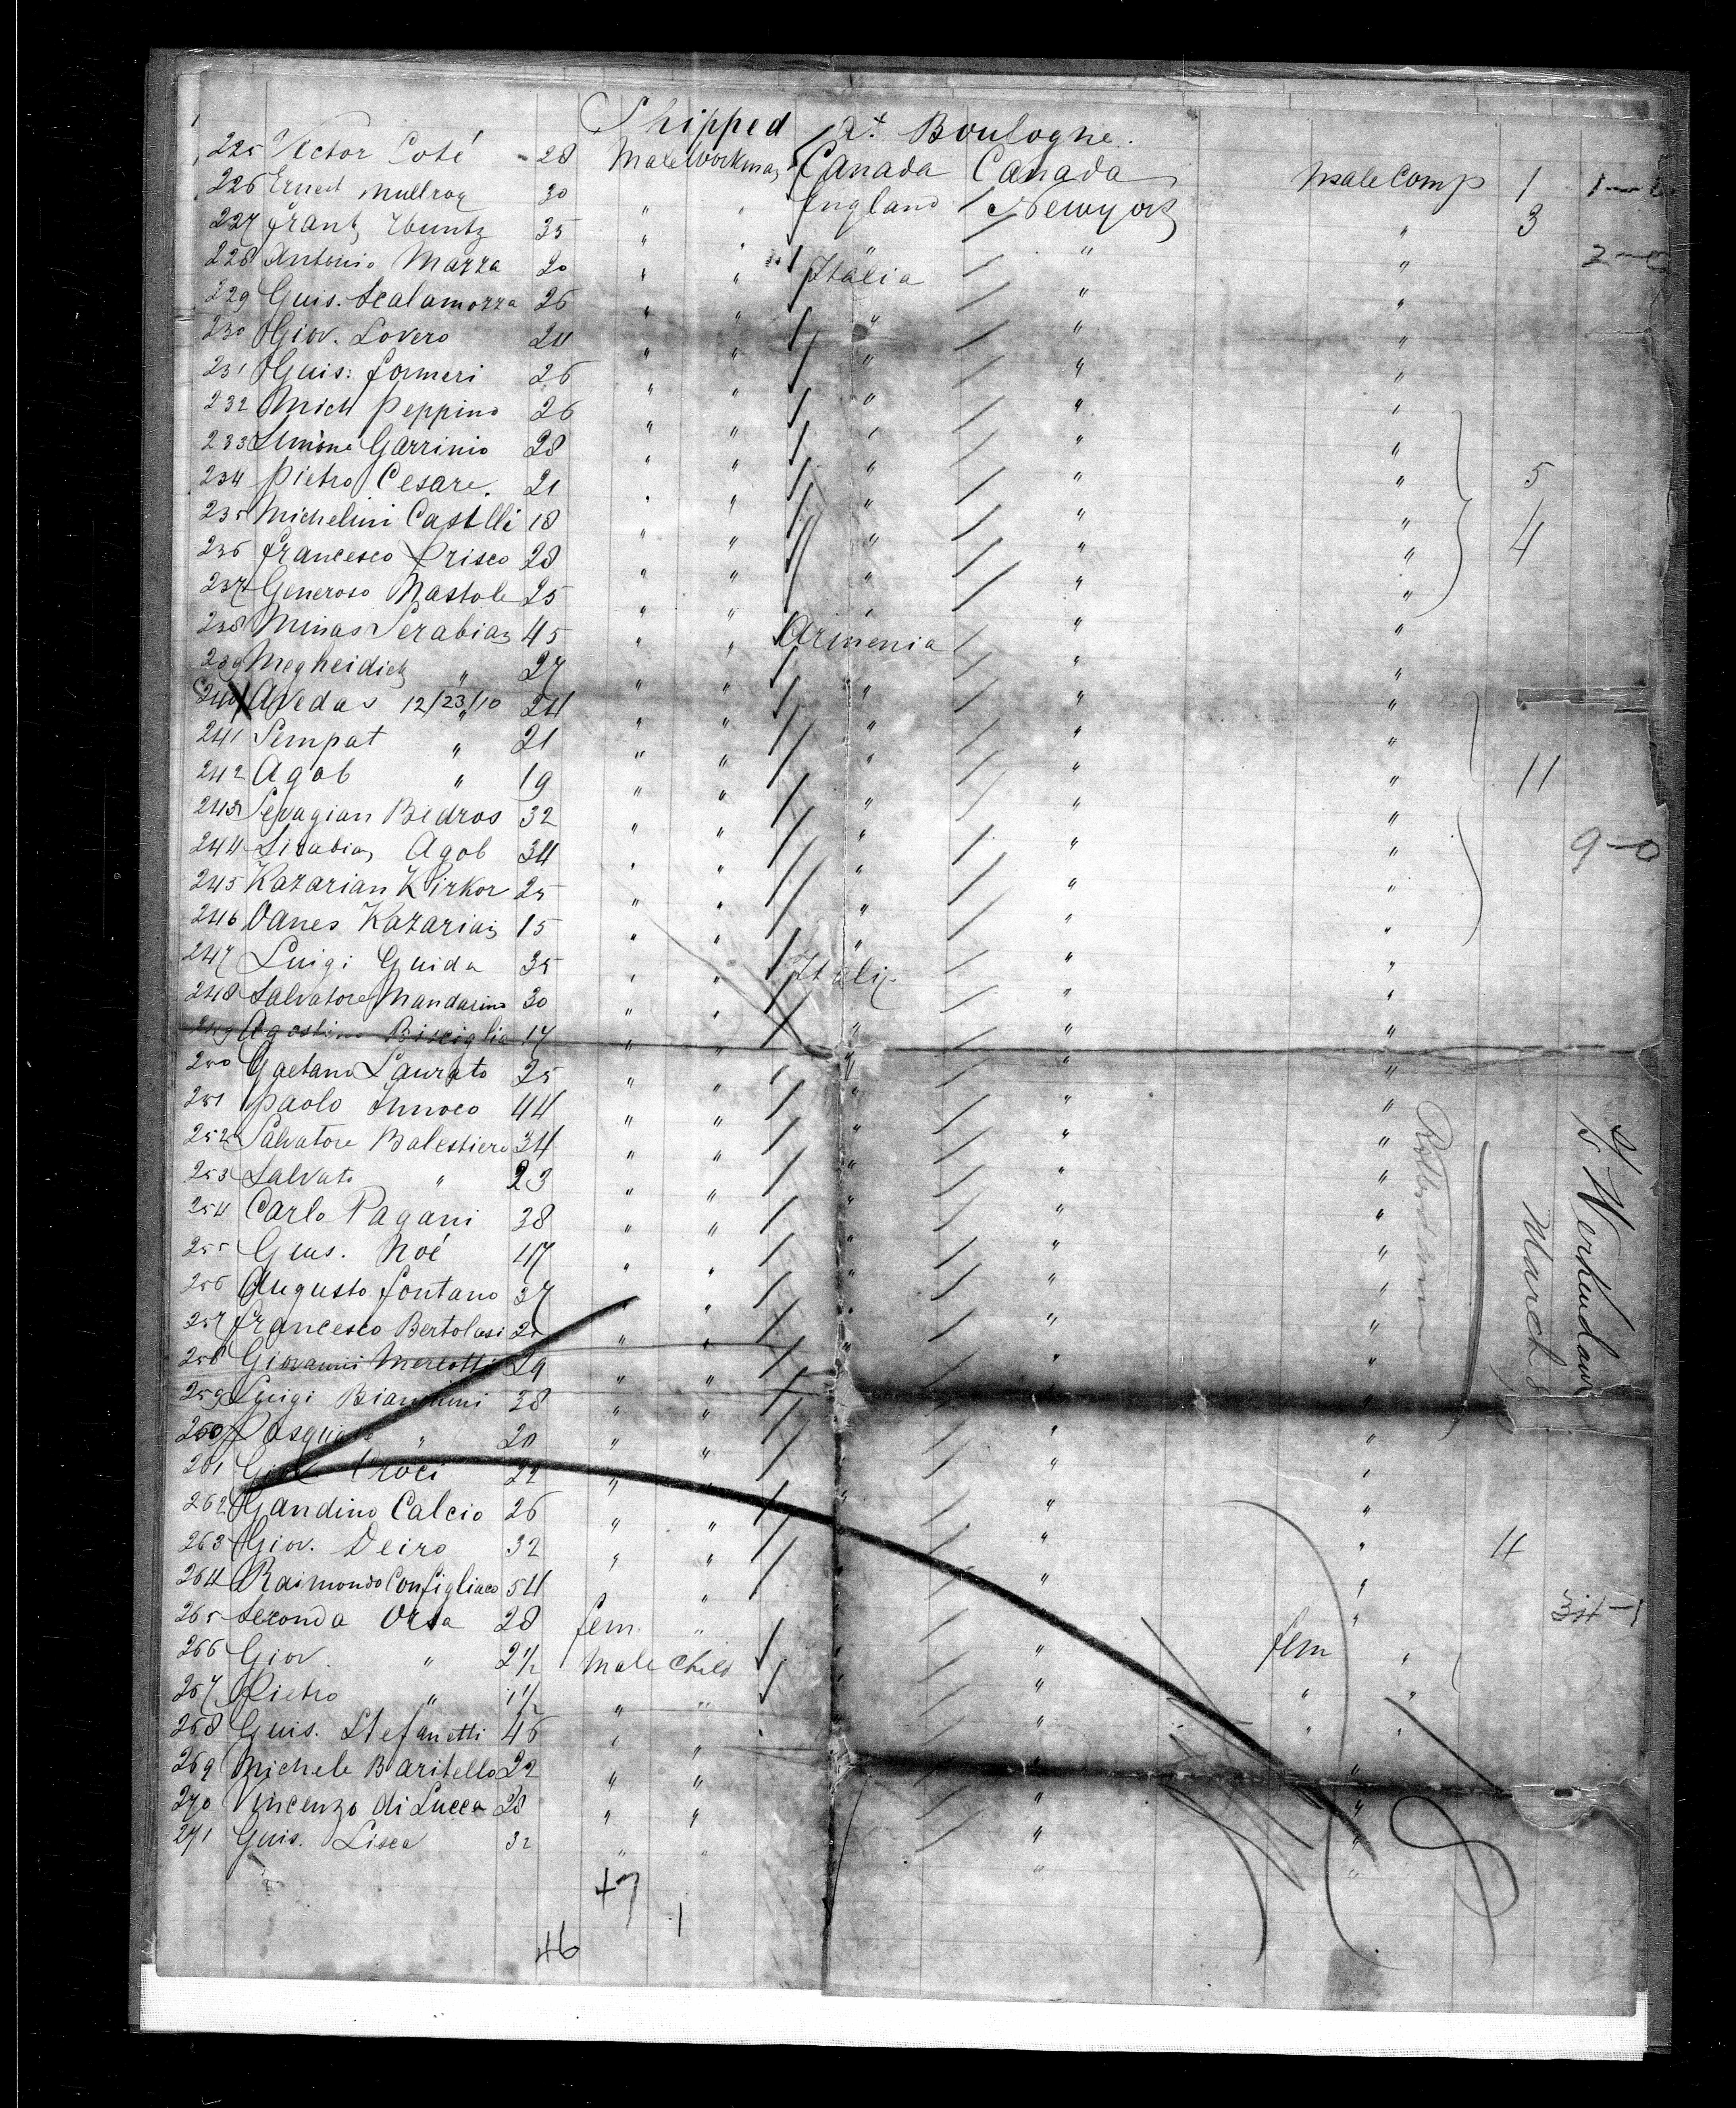 Shipped at Boulogne.
225 Victor Coté 28 Male Workman Canada Canada Male Comp 1
226 Ernest 30 " " England Newyork " 3
227 Frantz 35 " " " " "
228 Antonio Mazza 20 " " Italia " "
229 Guis. Scalamozza 26 " " " " "
230 Giov. Lovero 24 " " " " "
231 Guis: Formeri 26 " " " " "
232 Mich Peppino 26 " " " " "
233 Simone Garrinio 28 " " " " "
234 Pietro Cesare. 21 " " " " " 5
235 Michelini Castlli 18 " " " " "
236 Francesco Prisco 28 " " " " " 4
237 Generoso Nastole 25 " " " " "
238 Minas Serabian 45 " " Armenia " "
239 Megheidich " 27 " " " " "
240 X Avedas 12/23/10 " 24 " " " " "
241 Sempat " 21 " " " " "
242 Agob " 19 " " " " " 11
243 Sevagian Bedros 32 " " " " "
244 Agob 34 " " " " " 9-0
245 Kazarian Kirkor 25 " " " " "
246 Vanes Kazarian 15 " " " " "
247 Luigi Guida 35 " " Italia " "
248 Salvatore Mandarino 30 " " " " "
249 Agostino Bisciglia 17 " " " " "
250 Gaetano Laurato 25 " " " " "
251 Paolo 44 " " " " "
252 Salvatore Balestiero 34 " " " " "
253 Salvato " 23 " " " " "
254 Carlo Pagani 38 " " " " "
255 Gius. Noé 17 " " " " "
256 Augusto Fontano 37 " " " " "
257 Francesco Bertolasi " " " " "
258 Giovanni Merlotti 29 " " " " "
259 Luigi Bianchini 28 " " " " "
260 Pasquale " 20 " " " " "
261 Giov. Croci 22 " " " " "
262 Gandino Calcio 26 " " " " "
263 Giov. Deiro 32 " " " " " 4
264 Raimondo Configliaco 54 " " " " "
265 Seconda Orsa 28 fem. " " " fem "
266 Giov " 2 1/2 Male Child " " " "
267 Pietro " 1 1/2 " " " " " "
268 Guis. Stefanetti 46 " " " " "
269 Michele Baritello 22 " " " " "
270 Vincenzo di Lucca 28 " " " " "
271 Guis. Lisca 32 " " " " "
47
1
46
Rotterdam
March 8